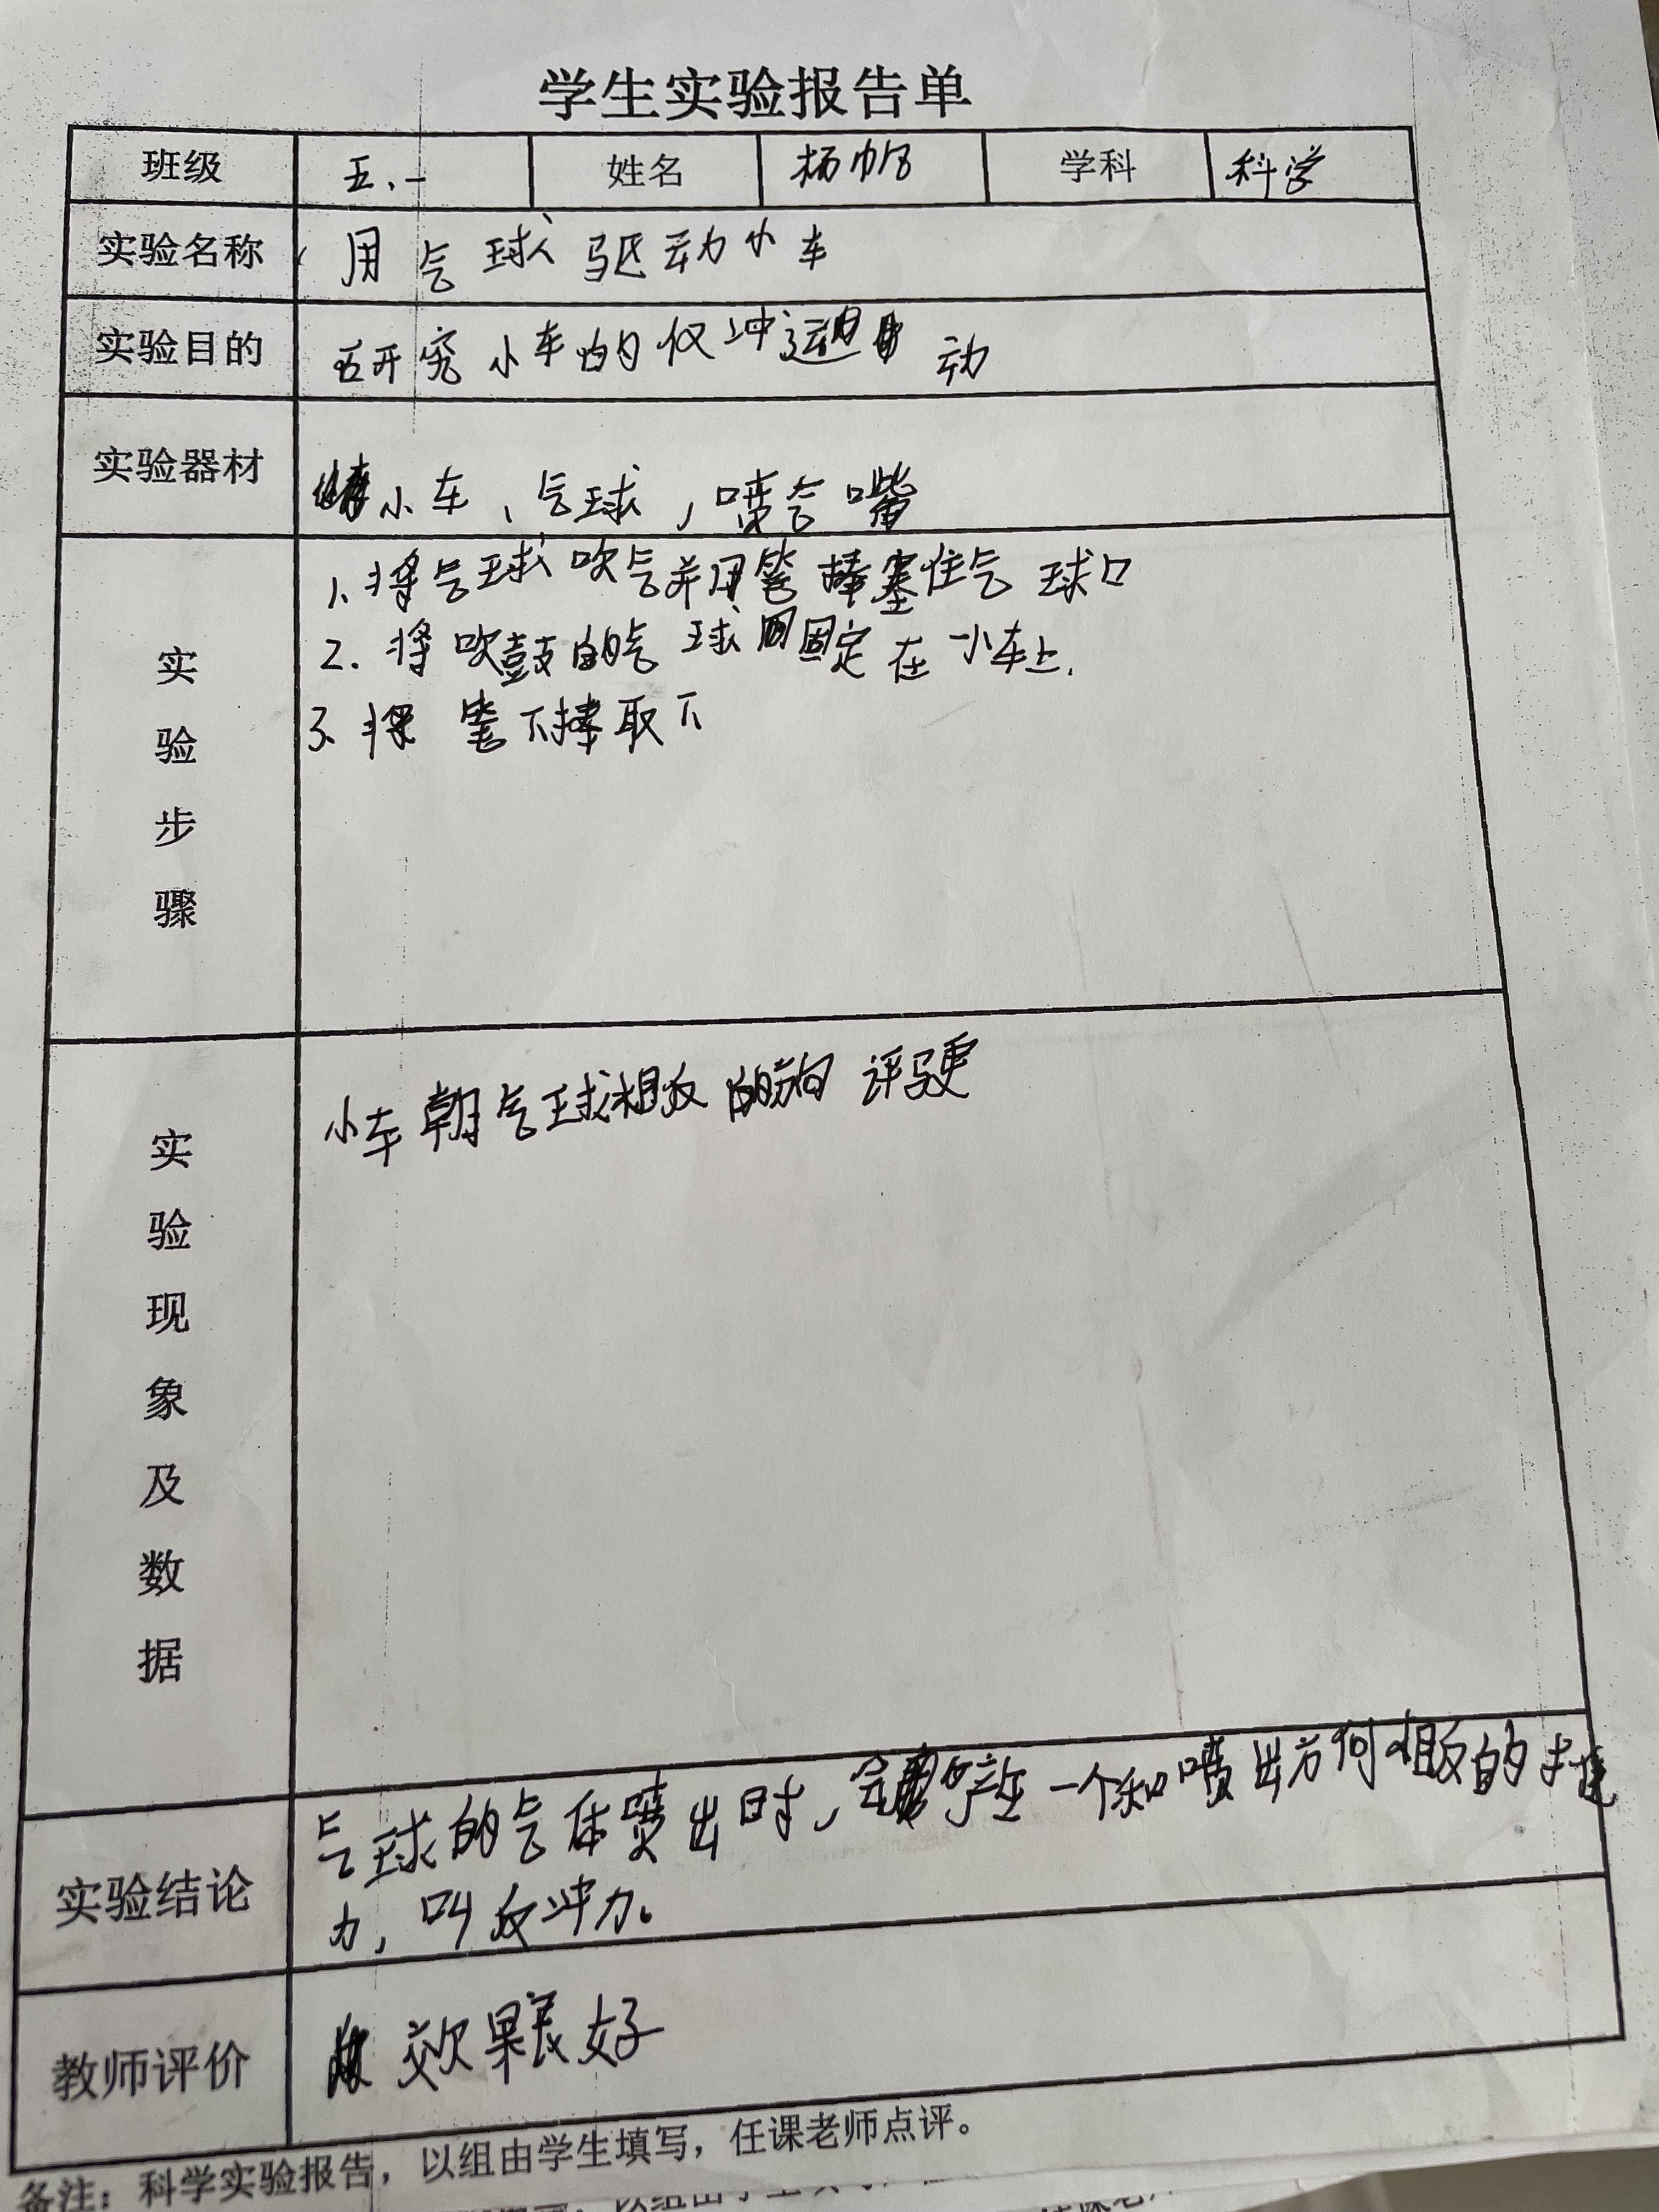 学生实验报告单
班级 五.一 姓名 杨帆 学科 科学
实验名称 用气球驱动小车
实验目的 研究小车的反冲运动
实验器材 小车、气球,喷气嘴
实验步骤
1.将气球吹气并用 棒塞住气球口
2.将吹鼓的气球固定在小车上.
3. 棒取下
实验现象及数据
小车朝气球相反的方向
实验结论
气球的气体喷出时,会产生一个和喷出方向相反的推
力,叫反冲力。
教师评价 效果良好
备注:科学实验报告,以组由学生填写,任课老师点评。